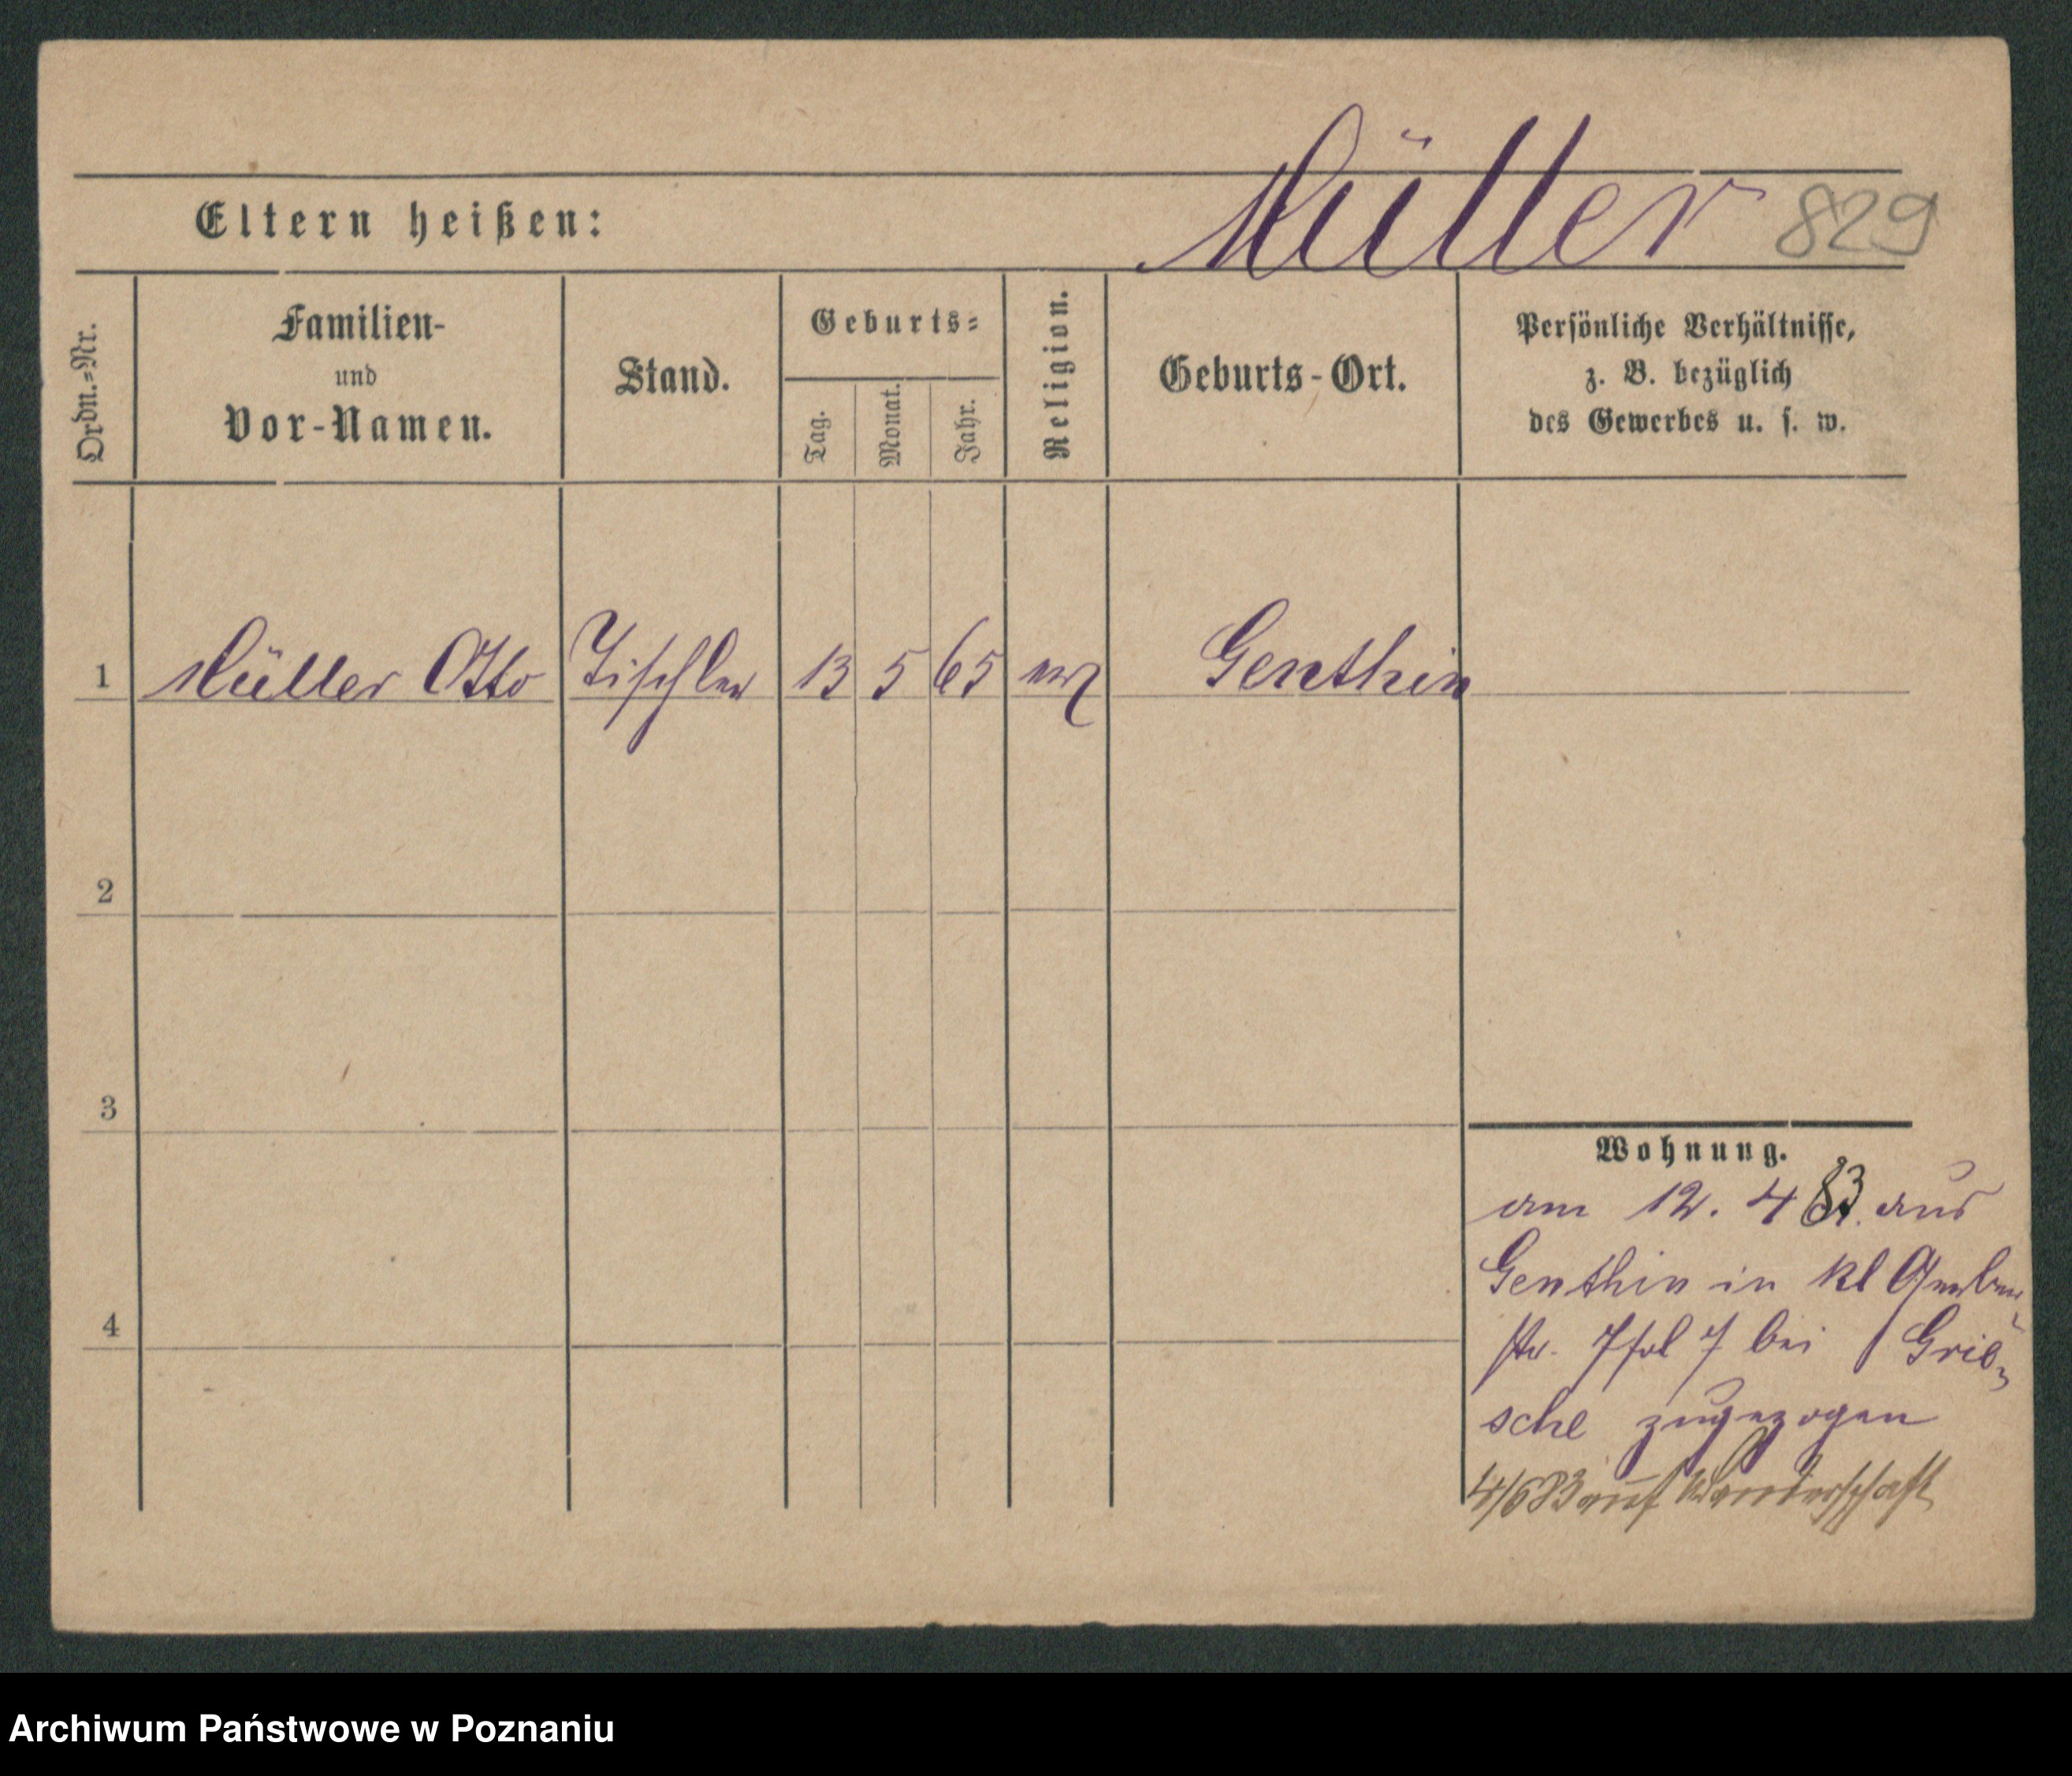 Müller 829
Eltern heißen:
Ordn.-Nr.
Familien-
und
Vor-Namen.
Stand.
Geburts-
Tag.
Monat.
Jahr.
Religion.
Geburts-Ort.
Persönliche Verhältnisse,
z. B. bezüglich
des Gewerbes u. s. w.
1 Müller Otto Tischler 13 5 65 Genthin
2
3
4
Wohnung.
am 12. 4 83. aus
Genthin in kl
str. 7 bei Grie-
sche zugezogen
4/6 83 auf Wanderschaft
Archiwum Państwowe w Poznaniu